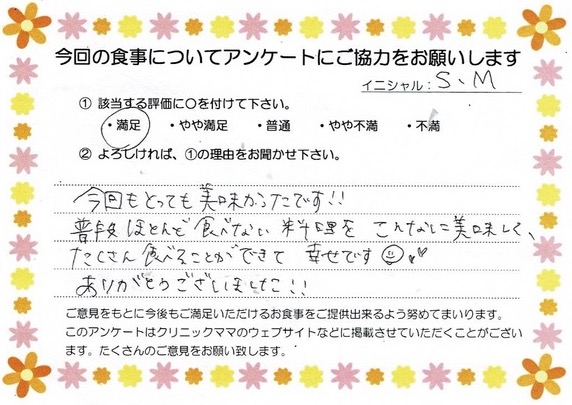 今回の食事についてアンケートにご協力をお願いします
イニシャル： S、M
① 該当する評価に○を付けて下さい。
・満足 ・やや満足 ・普通 ・やや不満 ・不満
② よろしければ、①の理由をお聞かせ下さい。
今回もとっても美味かったです!!
普段ほとんど食べない料理をこんなに美味しく、
たくさん食べることができて幸せです
ありがとうございました!!
ご意見をもとに今後もご満足いただけるお食事をご提供出来るよう努めてまいります。
このアンケートはクリニックママのウェブサイトなどに掲載させていただくことがござい
ます。たくさんのご意見をお願い致します。